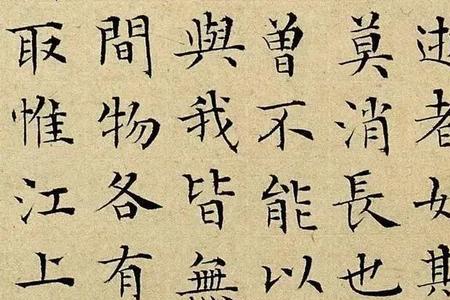 逝者如斯
莫消長也
曾不能以
與我皆無
間物各有
取惟江上